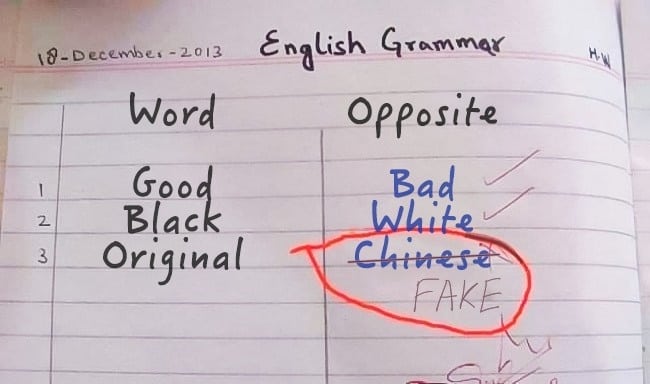 18-December-2013 English Grammar H.W
Word Opposite
1 Good Bad
2 Black White
3 Original Chinese
FAKE